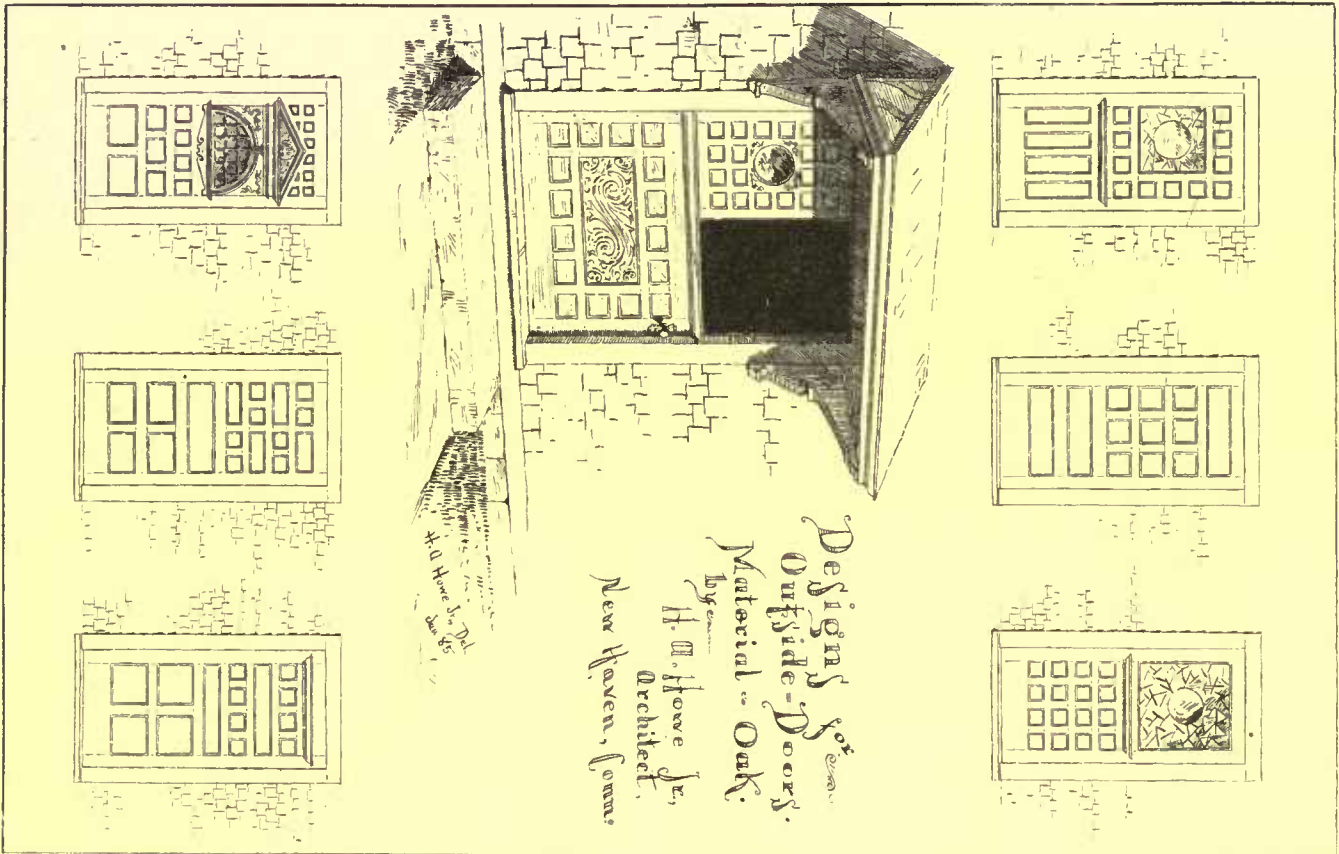 Designs for
Outside-Doors.
Material - Oak.
by
H. A. Howe Jr.,
Architect,
New Haven, Conn.
H. A Howe Jr. Del
Jan 85